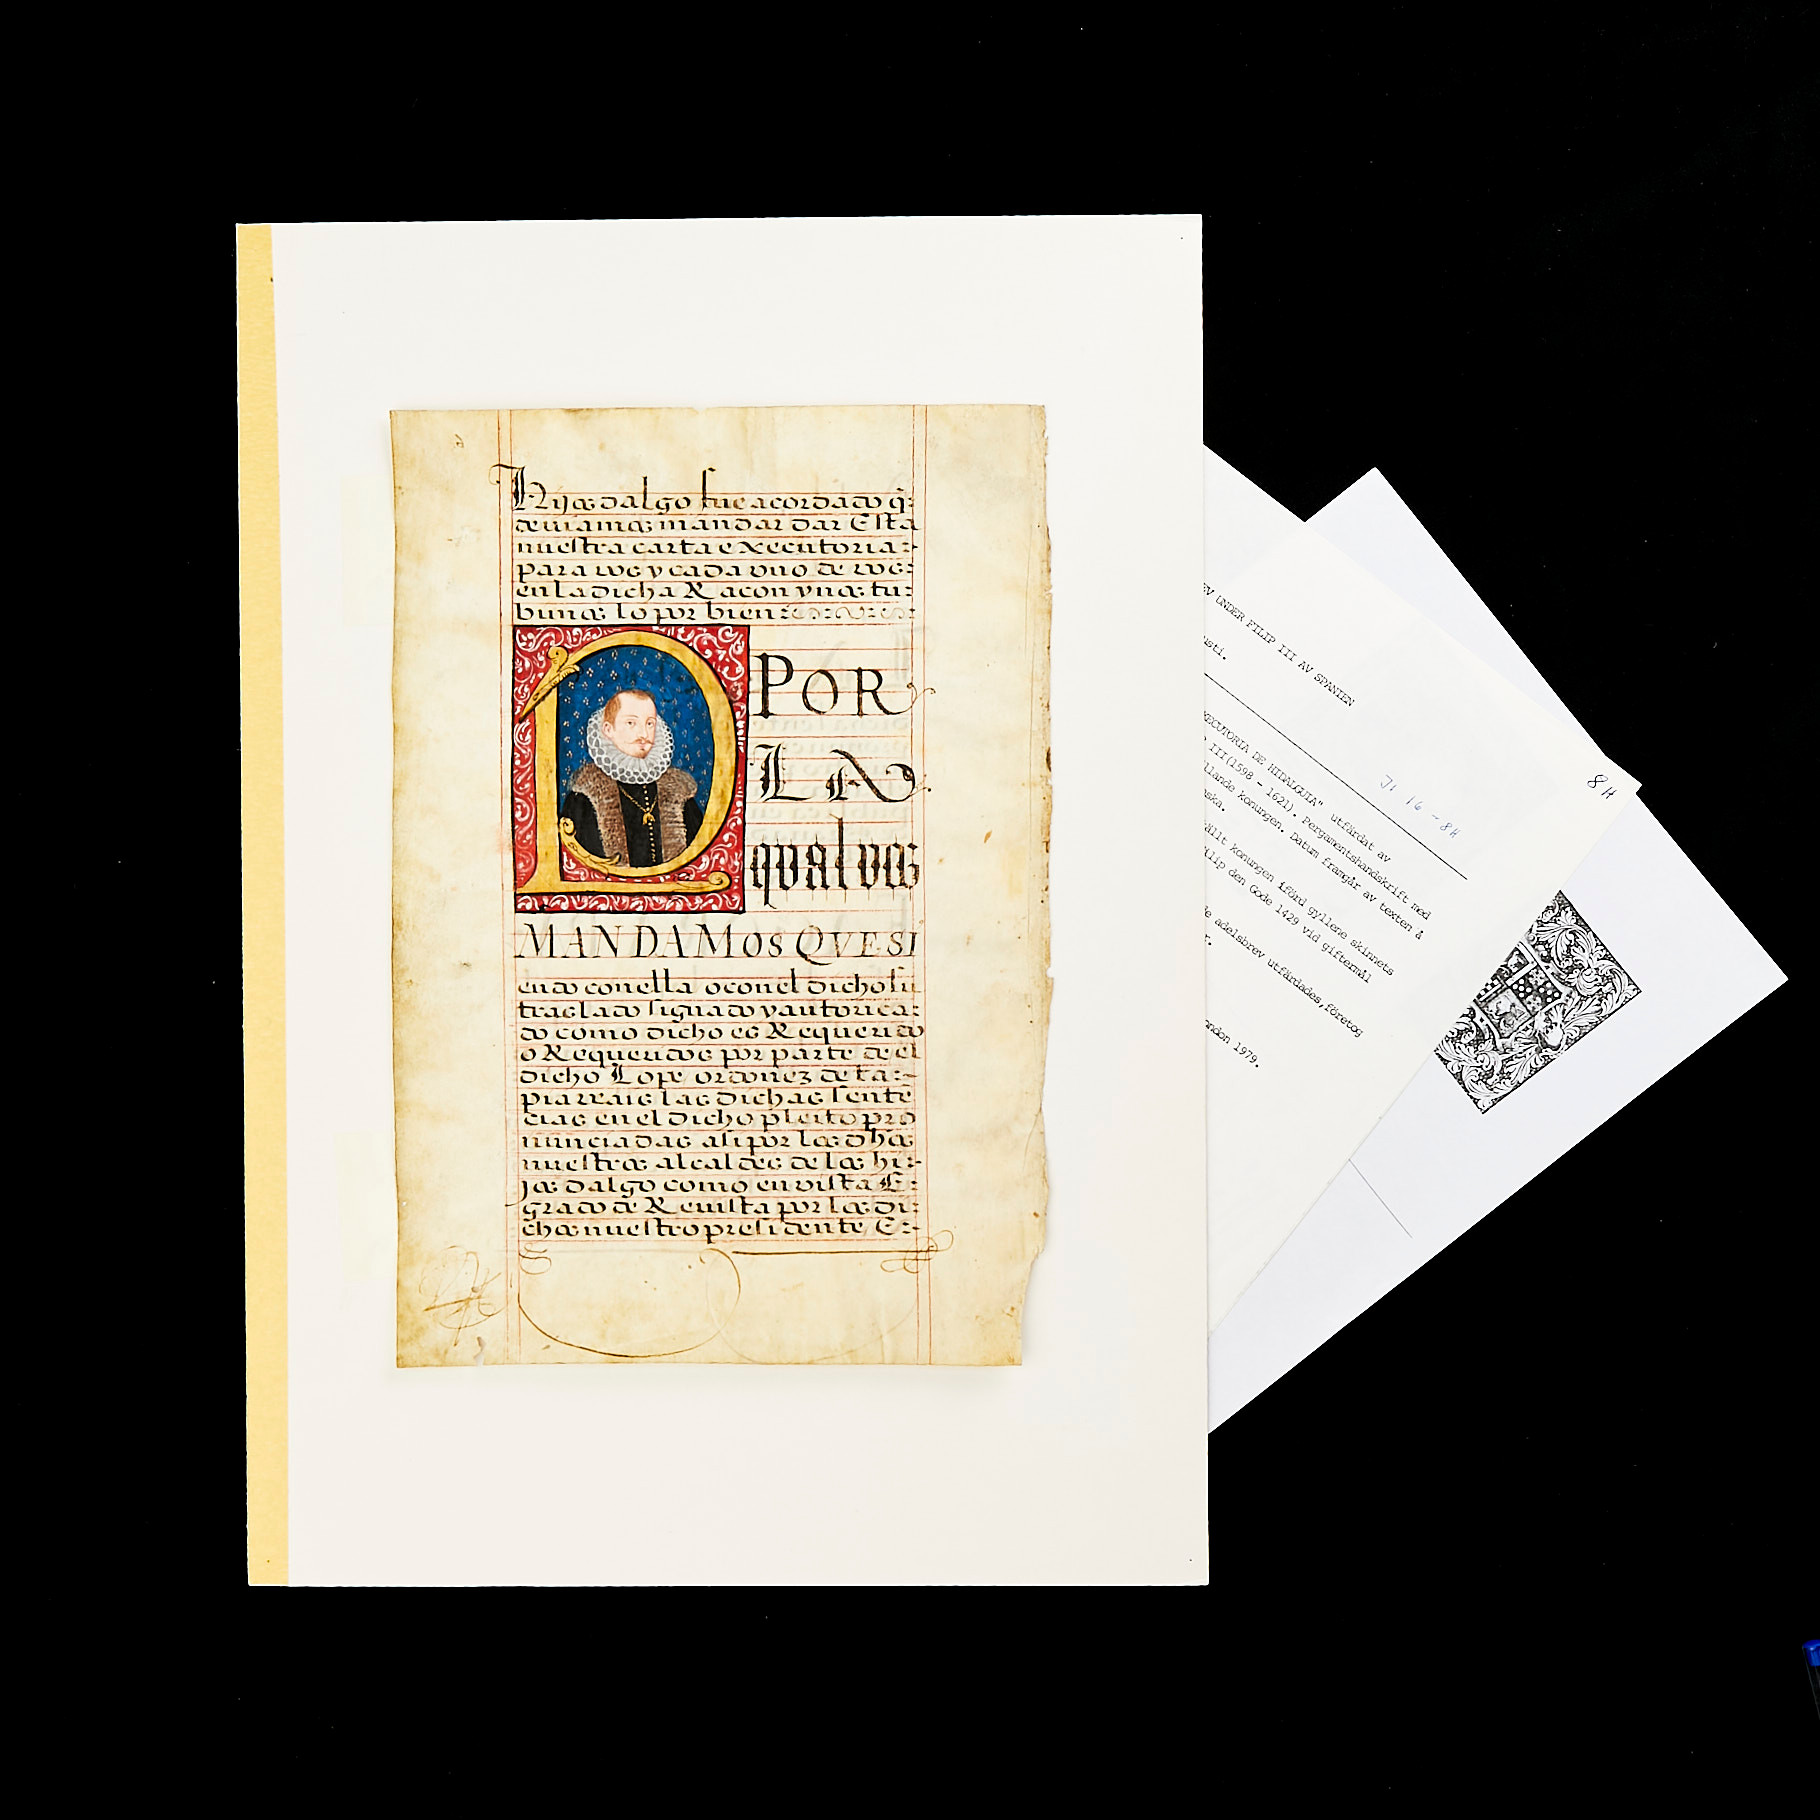 Hijos dalgo fue acordado q̃:
deuiamos mandar dar Esta
nuestra carta executoria:~
para vos y cada vno de vos:
en la dicha Raçon y nos tu:
bimos lo por bien:
D POR
LA
qual vos
MANDAMOS QVE SI
endo con ella o con el dicho su
traslado signado y autoriça:
do como dicho es Requerido
o Requeridos por parte de el
dicho Lope ordonez de ta:~
pia veais las dichas sente
cias en el dicho pleito pro
nunciadas asi por los dhos
nuestros alcaldes de los hi:~
jos dalgo como en vista E:
grado de Reuista por los di:
chos nuestro presidente E:~
EV UNDER FILIP III AV SPANIEN
usti.
8H
ECUTORIA DE HIDALGUIA" utfärdat av
III(1598 - 1621). Pergamentshandskrift med
llande konungen. Datum framgår av texten å
ska.
ällt konungen iförd gyllene skinnets
ilip den Gode 1429 vid giftermål
de adelsbrev utfärdades, företog
r.
ondon 1979.